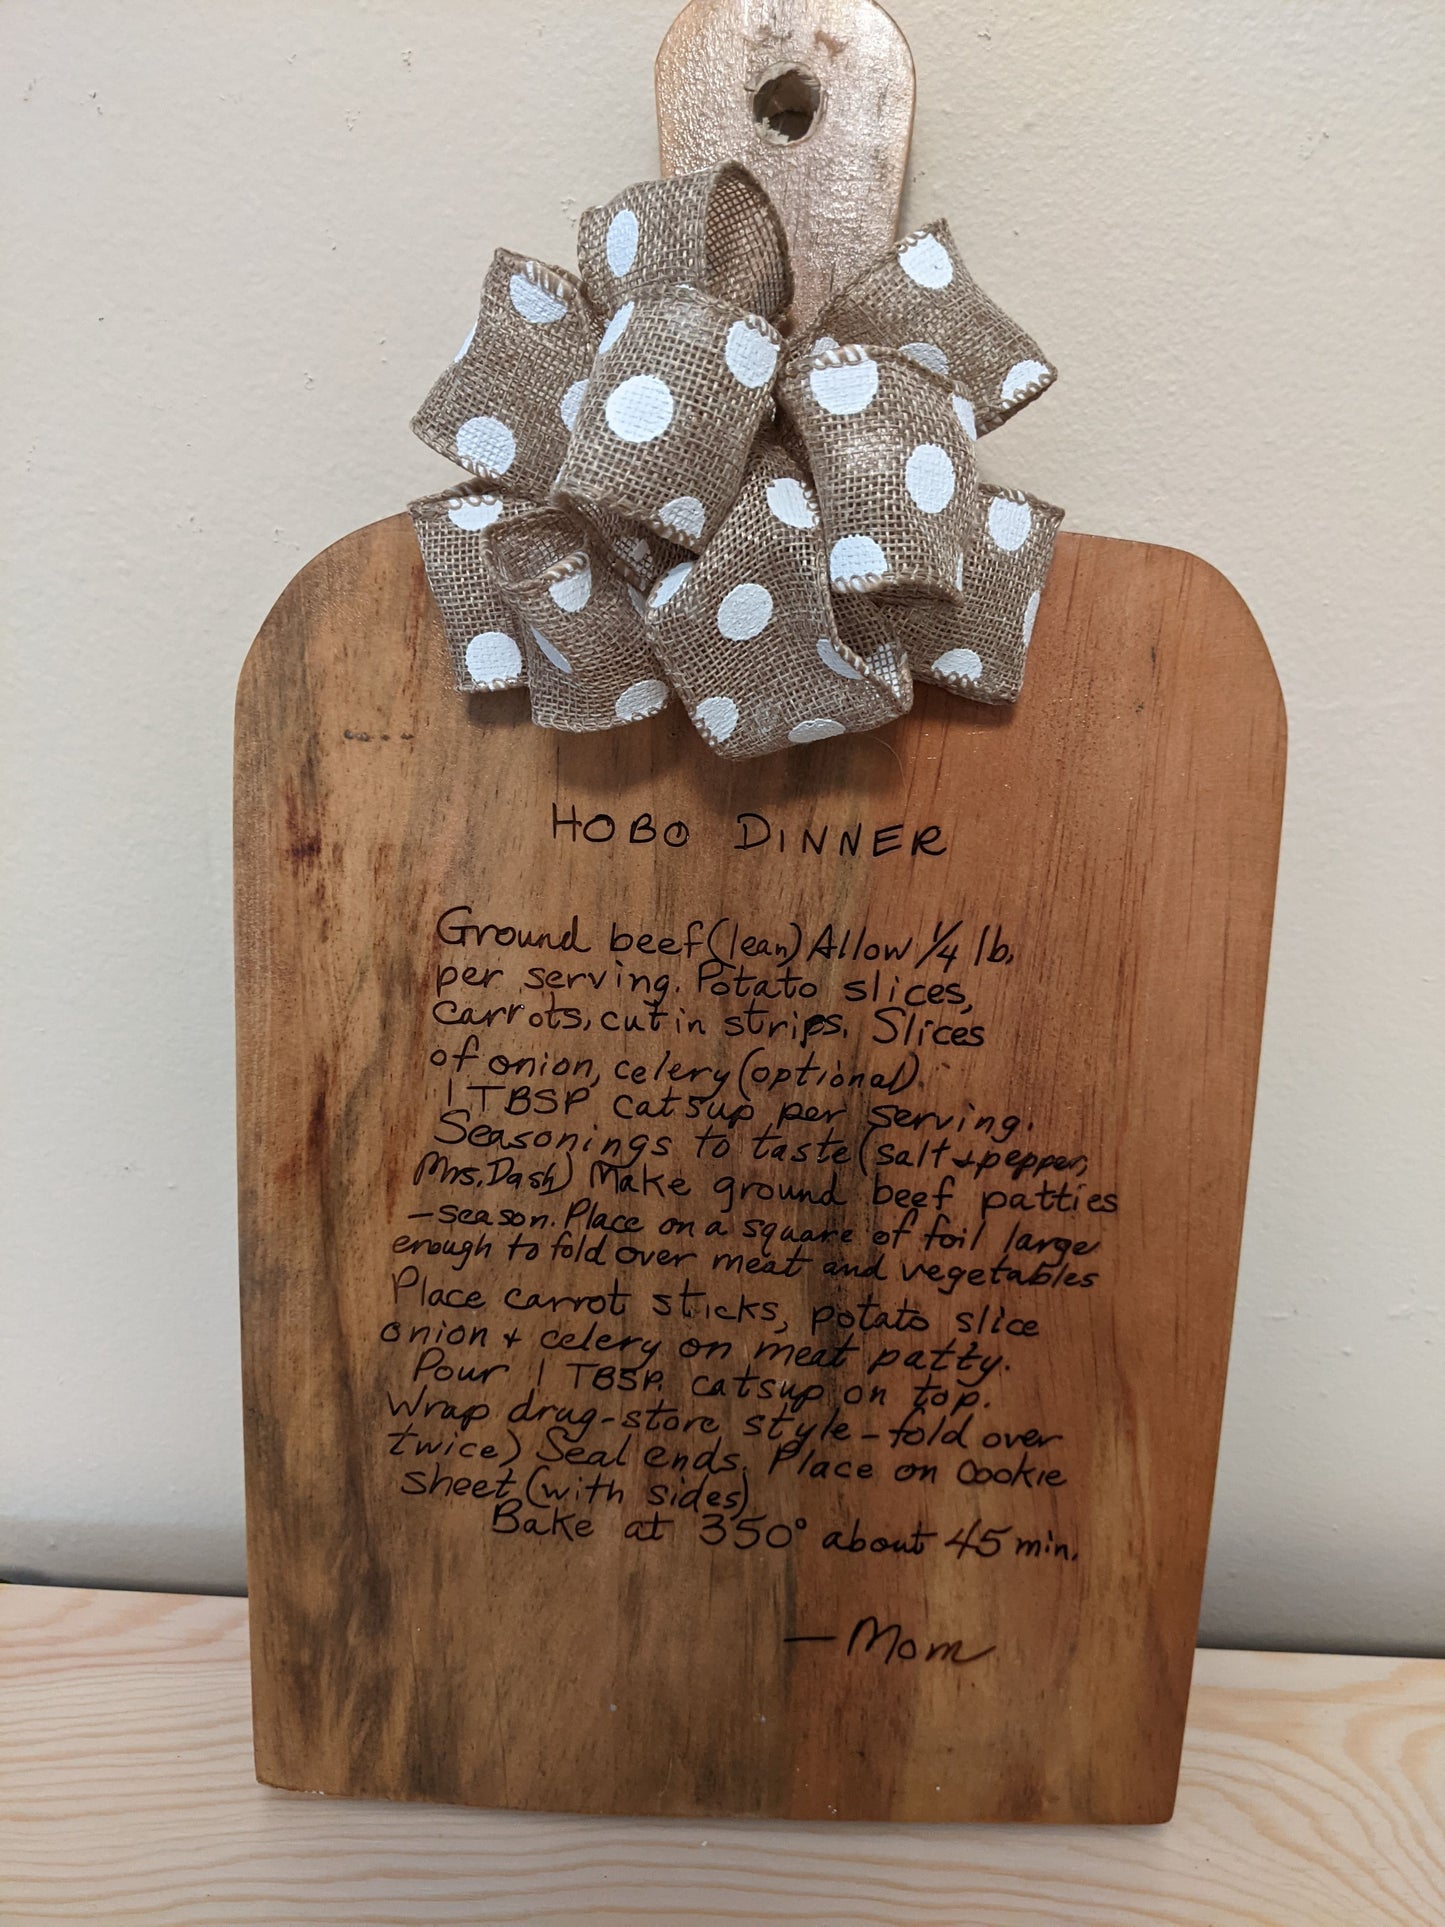 HOBO DINNER
Ground beef (lean) Allow 1/4 lb.
per serving. Potato slices,
carrots, cut in strips. Slices
of onion, celery (optional).
1 TBSP catsup per serving.
Seasonings to taste (salt + pepper,
Mrs. Dash) Make ground beef patties
– season. Place on a square of foil large
enough to fold over meat and vegetables
Place carrot sticks, potato slice
onion + celery on meat patty.
Pour 1 TBSP. catsup on top.
Wrap drug-store style – fold over
twice) Seal ends. Place on Cookie
sheet (with sides)
Bake at 350° about 45 min.
– Mom